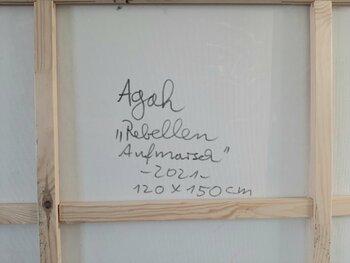 Agah
„Rebellen
Aufmarsch"
-2021-
120 x 150 cm